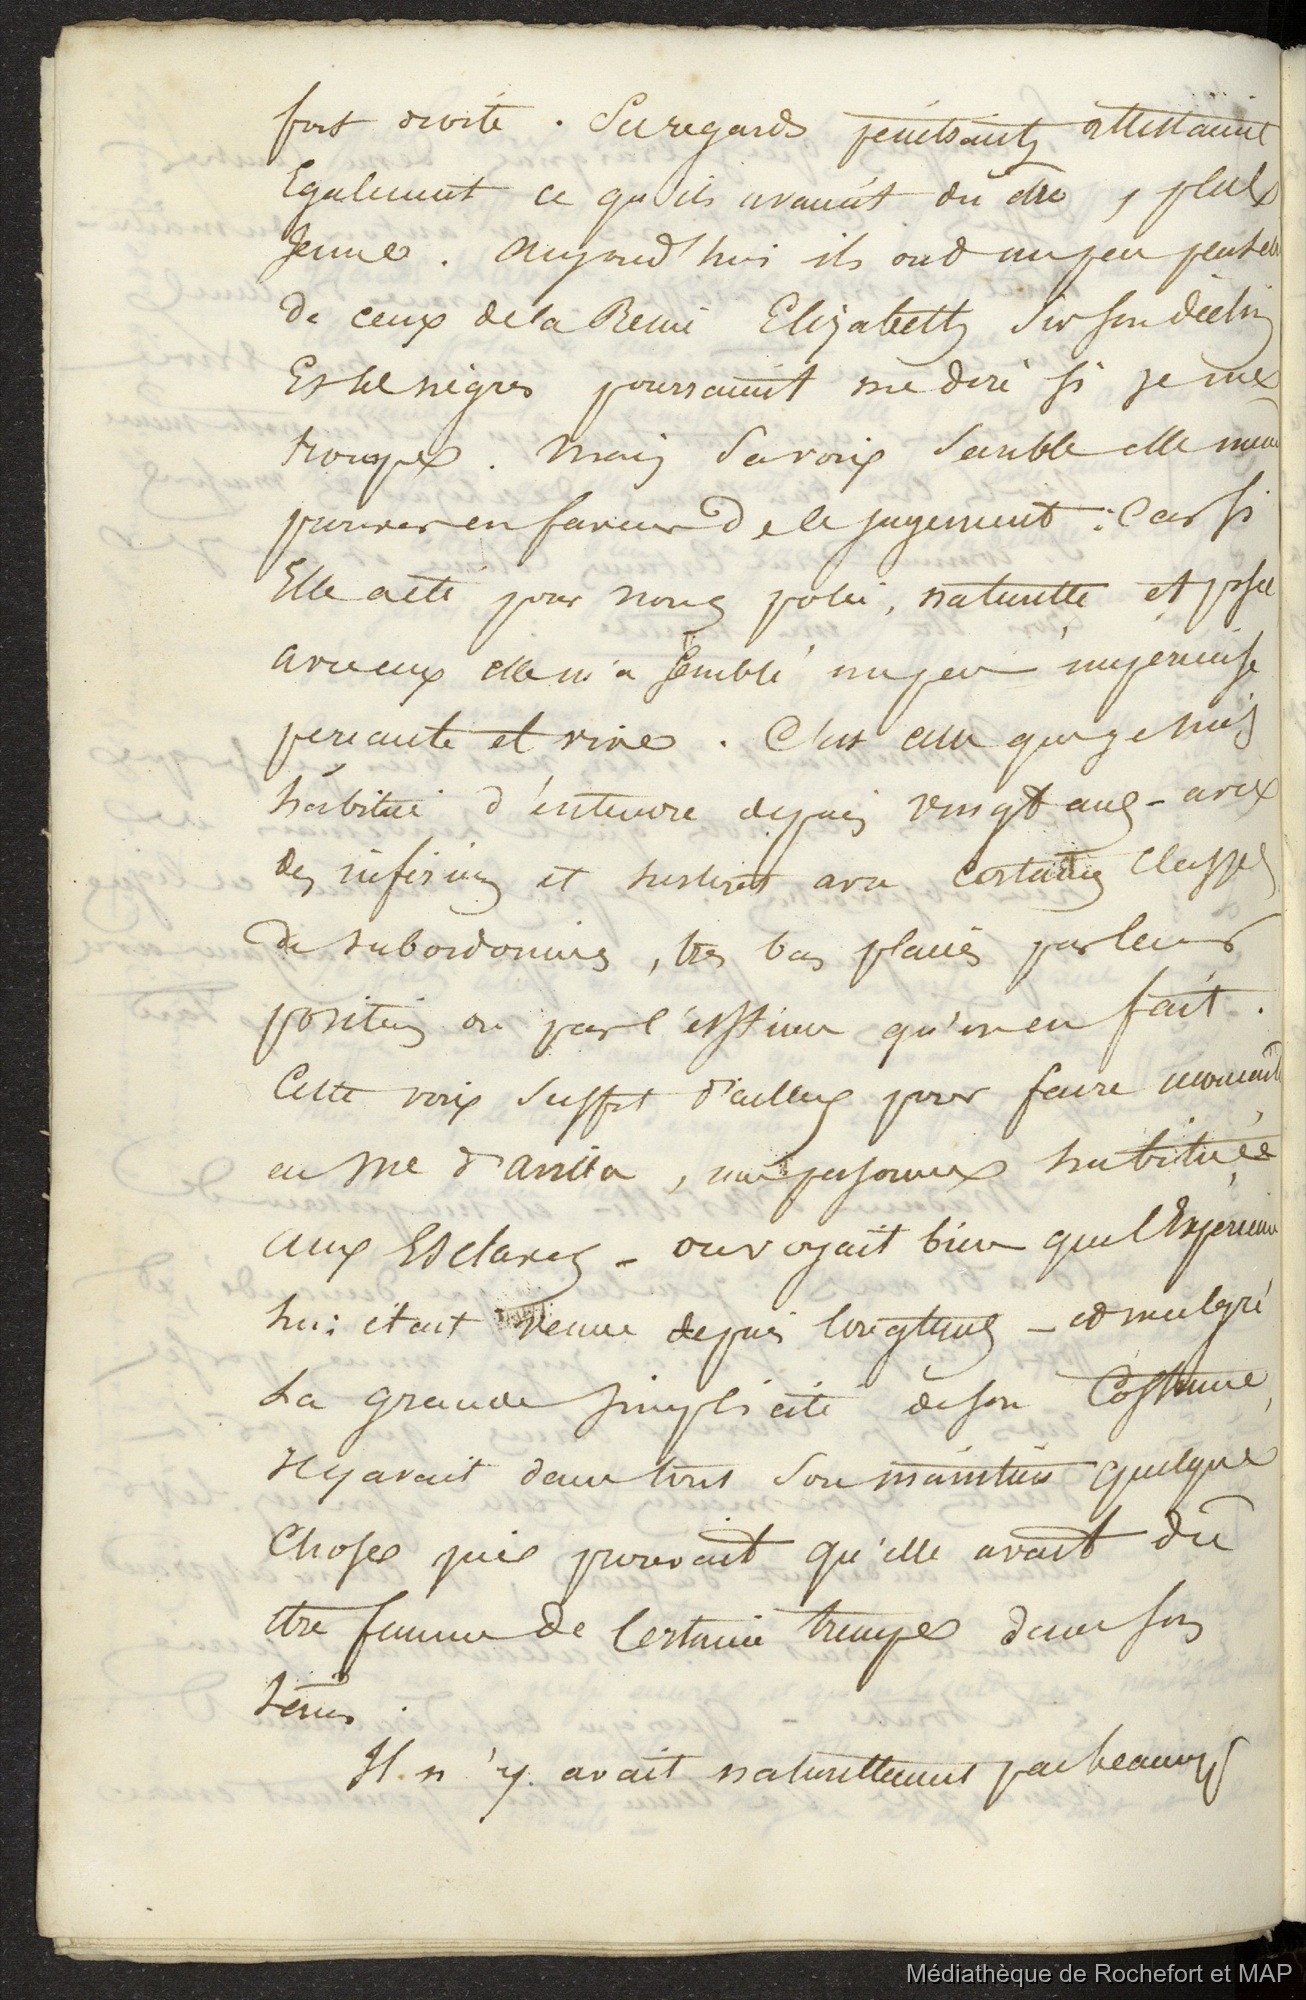 fort droite. Ses regards pénétrants attestaient
Egalement ce qu'ils avaient dû être, plus
Jeune. Aujourd'hui ils ont un peu peut être
de ceux de la Reine Elizabeth sur son déclin
Et les nègres pourraient me dire si je me
trompe. Mais sa voix semble elle même
prouver en faveur de le jugement : Car si
Elle a été pour nous polie, naturelle et posée
avec eux elle m'a semblé un peu impérieuse
percante et vive. C'est celle que je suis
habitué d'entendre depuis vingt ans - avec
des inférieurs et surtout avec certaines classes
de subordonnés, très bas placés par leur
position ou par l'estime qu'on en fait.
Cette voix suffit d'ailleurs pour faire
en Me d'Avilla, une personne habituée
aux Esclaves - on voyait bien que l'Expérience
lui était venue depuis longtems - et malgré
La grande simplicité de son Costume,
Il y avait dans tout son maintien quelque
Chose qui prouvait qu'elle avait dû
être femme de Certaine trempe dans son
tems.
Il n'y avait naturellement pas beaucoup
Médiathèque de Rochefort et MAP